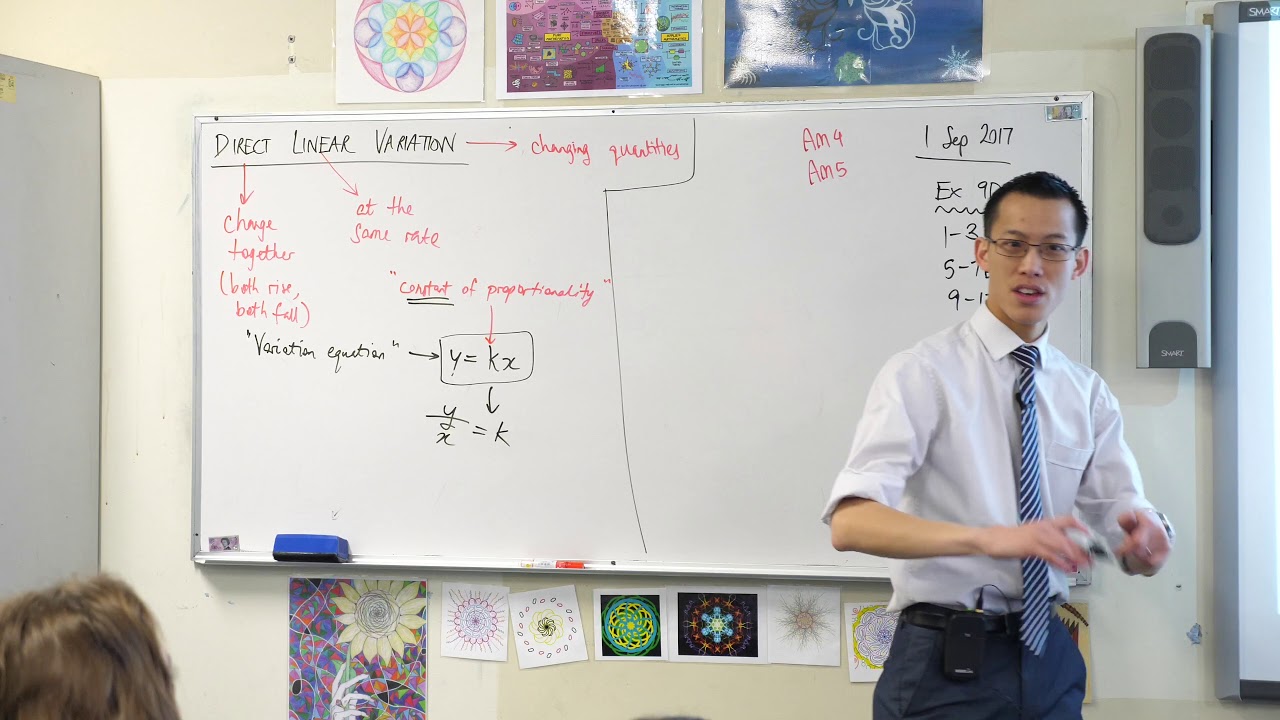 DIRECT LINEAR VARIATION → changing quantities
change
together
(both rise,
both fall)
at the
same rate
"constant of proportionality"
"Variation equation" → y = kx
y/x = k
Am4
Am5
1 Sep 2017
Ex 9D
1-3
5-7
9-1
SMART
SMART